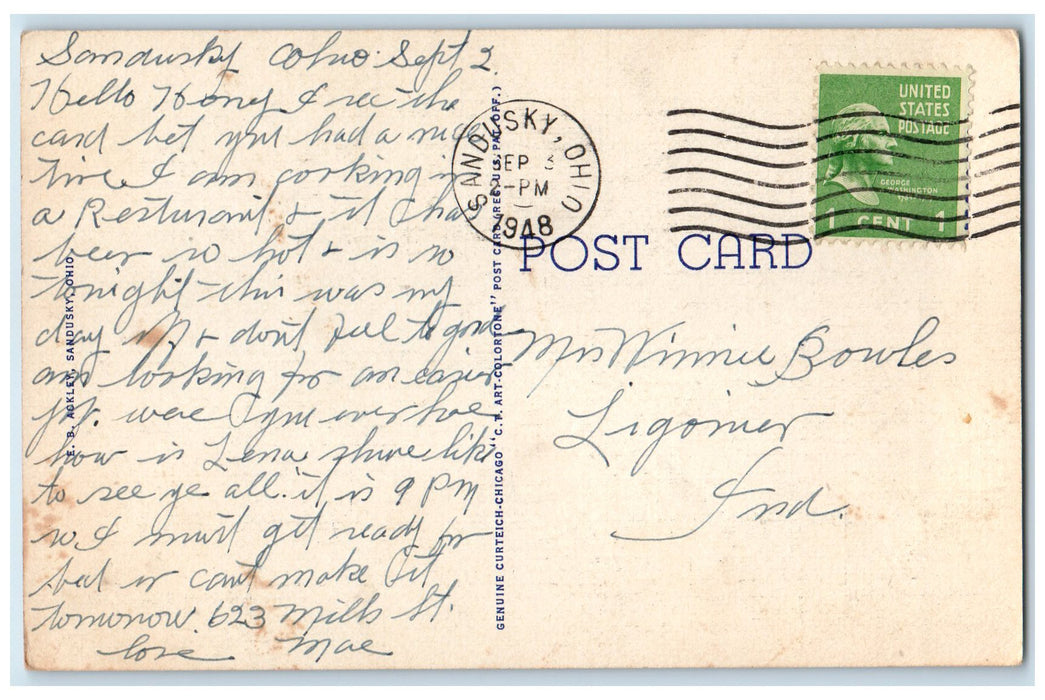 Sandusky Ohio Sept 2
Hello Honey I rec the
card bet you had a nice
time. I am working in
a Resturant & it has
been so hot & is so
tonight this was my
day off & don't feel to good
and looking for an easier
jot. were I gm over hoe
how is Lena shure like
to see ye all. it is 9 PM
so I must get ready for
bed or cant make it
tomorrow 623 Mills St.
love Mae
E. B. ACKLEY, SANDUSKY, OHIO
GENUINE CURTEICH-CHICAGO "C.T. ART-COLORTONE" POST CARD (REG. U.S. PAT. OFF.)
SANDUSKY, OHIO
SEP 3
2-PM
1948
UNITED
STATES
POSTAGE
GEORGE
WASHINGTON
1 CENT 1
POST CARD
Mrs Winnie Bowles
Ligonier
Ind.